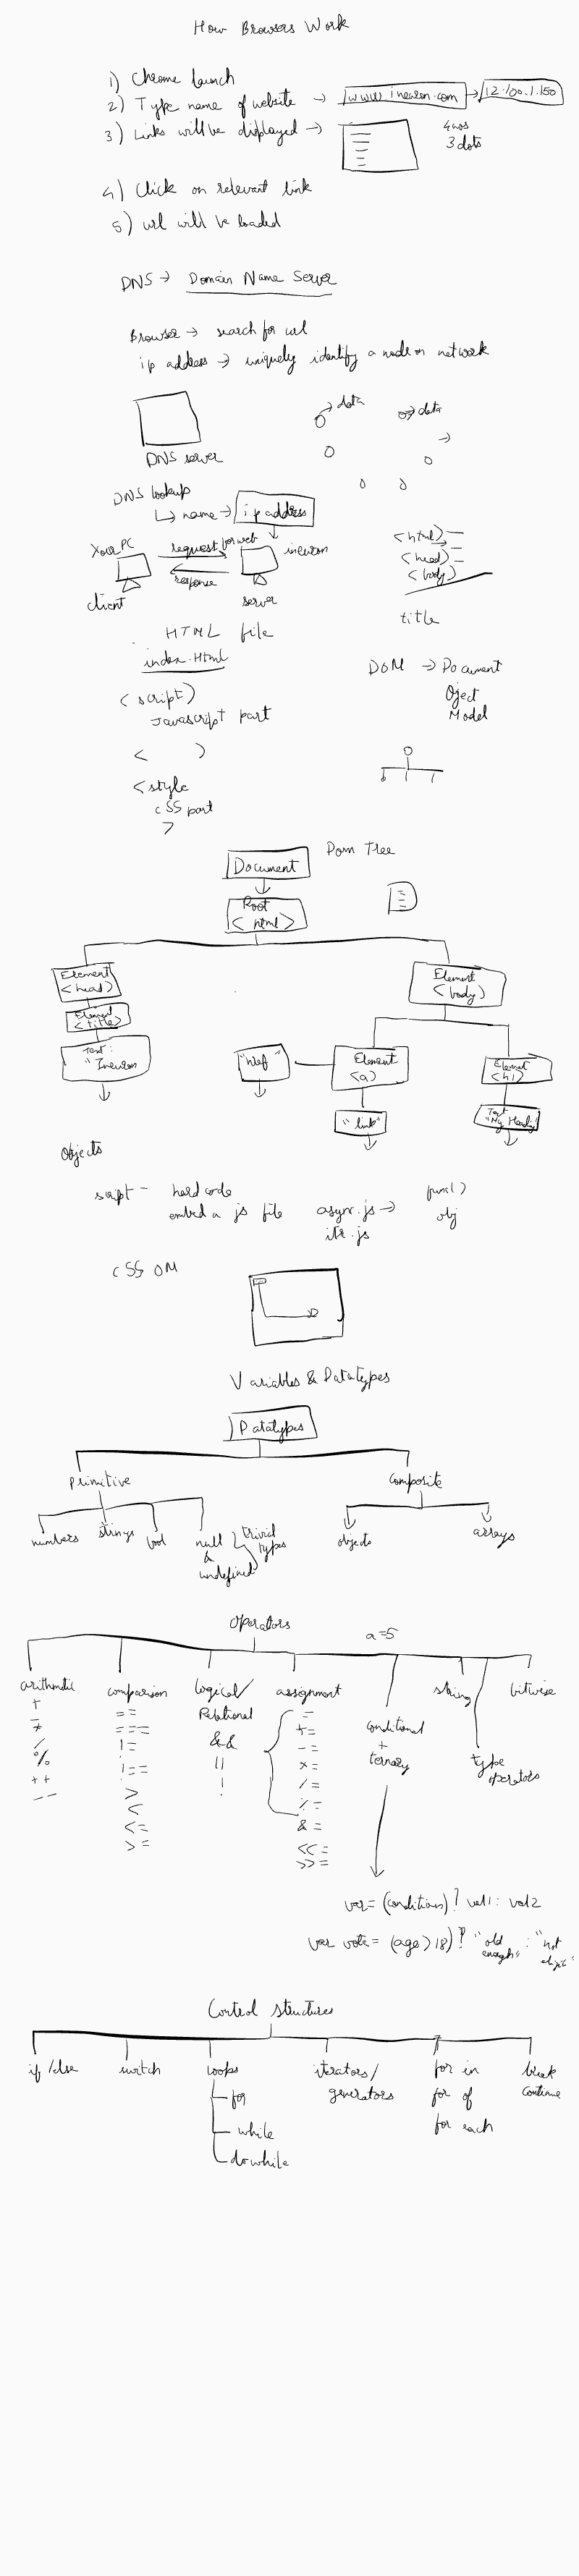 How Browsers Work
1) Chrome launch
2) Type name of website → www.ineuron.com → 12.100.1.150
3) Links will be displayed →
3 dots
4) Click on relevant link
5) url will be loaded
DNS → Domain Name Server
Browser → search for url
ip address → uniquely identify a node on network
→ data
→ data
DNS server
DNS lookup
↳ name → ip address
Your PC
request for web
ineuron
response
client
server
<html>
<head>
<body>
title
HTML file
index.Html
DOM → Document
Oject
Model
<script>
Javascript part
< >
<style
CSS part
>
Dom Tree
Document
Root
<html>
Element
<head>
Element
<body>
Element
<title>
Text:
"Ineuron
"href"
Element
<a>
Element
<h1>
"link"
Text
"My Heading"
Objects
script - hard code
embed a js file
async.js →
obj
CSS OM
Variables & Datatypes
Datatypes
Primitive
Composite
numbers
strings
bool
null
&
undefined
trivial
types
objects
arrays
Operators
a=5
arithmetic
+
-
*
/
%
++
--
comparison
==
===
!=
!==
>
<
<=
>=
logical/
Relational
&&
||
!
assignment
=
+=
-=
*=
/=
%=
&=
<<=
>>=
conditional
+
ternary
string
type
operators
bitwise
var= (conditions) ? val1 : val2
var vote = (age>18) ? "old enough" : "not
Control structures
if /else
switch
loops
for
while
do while
iterators/
generators
for in
for of
for each
break
continue